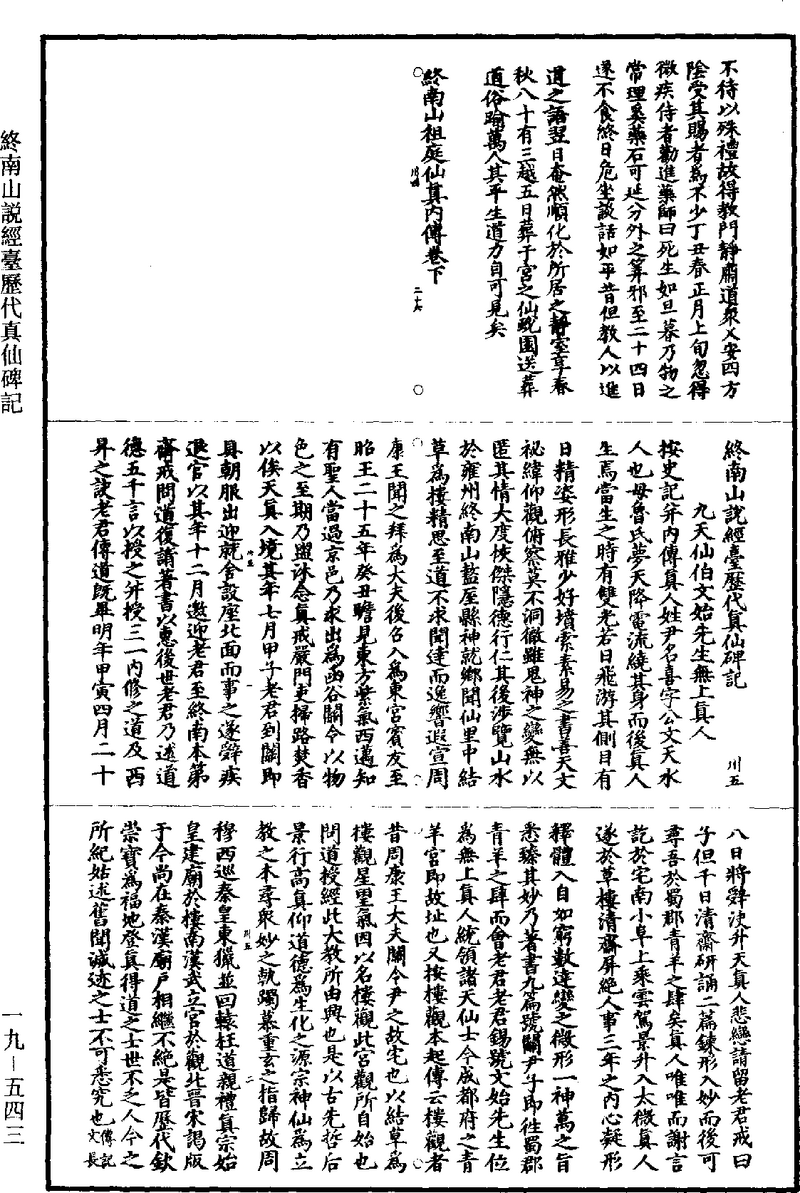 不待以殊禮故得教門靜肅道衆乂安四方
陰受其賜者為不少丁丑春正月上旬忽得
微疾侍者勸進藥師曰死生如旦暮乃物之
常理奚藥石可延分外之算邪至二十四日
遂不食終日危坐談話如平昔但教人以進
道之語翌日奄然順化於所居之靜室享春
秋八十有三越五日葬于宮之仙蛻園送葬
道俗踰萬人其平生道力自可見矣
終南山祖庭仙真內傳卷下
終南山說經臺歷代真仙碑記 川五
九天仙伯文始先生無上真人
按史記并內傳真人姓尹名喜字公文天水
人也母魯氏夢天降電流繞其身而後真人
生焉當生之時有雙光若日飛游其側目有
日精姿形長雅少好墳索素易之書善天文
祕緯仰觀俯察莫不洞徹雖鬼神之變無以
匿其情大度恢傑隱德行仁其後涉覽山水
於雍州終南山盩厔縣神就鄉聞仙里中結
草為樓精思至道不求聞達而逸響遐宣周
康王聞之拜為大夫後召入為東宮賓友至
昭王二十五年癸丑瞻見東方紫氣西邁知
有聖人當過京邑乃求出為函谷關令以物
色之至期乃盥沐念真戒嚴門吏掃路焚香
以俟天真入境其年七月甲子老君到關即
具朝服出迎就舍設座北面而事之遂辭疾
退官以其年十二月邀迎老君至終南本第
齋戒問道復請著書以惠後世老君乃述道
德五千言以授之并授三一內修之道及西
昇之訣老君傳道既畢明年甲寅四月二十
八日將辭決升天真人悲戀請留老君戒曰
子但千日清齋研誦二篇鍊形入妙而後可
尋吾於蜀郡青羊之肆矣真人唯唯而謝言
訖於宅南小阜上乘雲駕景升入太微真人
遂於草樓清齋屏絕人事三年之內心凝形
釋體入自如窮數達變之微形一神萬之旨
悉臻其妙乃著書九篇號關尹子即往蜀郡
青羊之肆而會老君老君錫號文始先生位
為無上真人統領諸天仙士今成都府之青
羊宮即故址也又按樓觀本起傳云樓觀者
昔周康王大夫關令尹之故宅也以結草為
樓觀星望氣因以名樓觀此宮觀所自始也
問道授經此大教所由興也是以古先哲后
景行高真仰道德為生化之源宗神仙為立
教之本尋衆妙之軌躅慕重玄之指歸故周
穆西巡秦皇東獵並回轅枉道親禮真宗始
皇建廟於樓南漢武立宮於觀北晉宋謁版
于今尚在秦漢廟户相繼不絕是皆歷代欽
崇寶為福地登真得道之士世不乏人今之
所紀姑述舊聞誠迹之士不可悉究也傳記文長
終南山說經臺歷代真仙碑記
一九－五四三